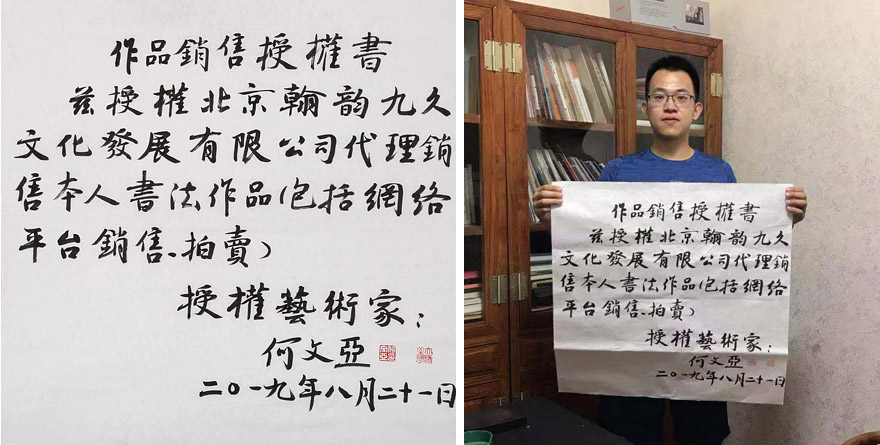 作品銷售授權書
茲授權北京翰韵九久
文化發展有限公司代理銷
售本人書法作品(包括網络
平台銷售、拍賣)
授權藝術家:
何文亞
二〇一九年八月二十一日
作品銷售授權書
茲授權北京翰韵九久
文化發展有限公司代理銷
售本人書法作品(包括網络
平台銷售、拍賣)
授權藝術家:
何文亞
二〇一九年八月二十一日